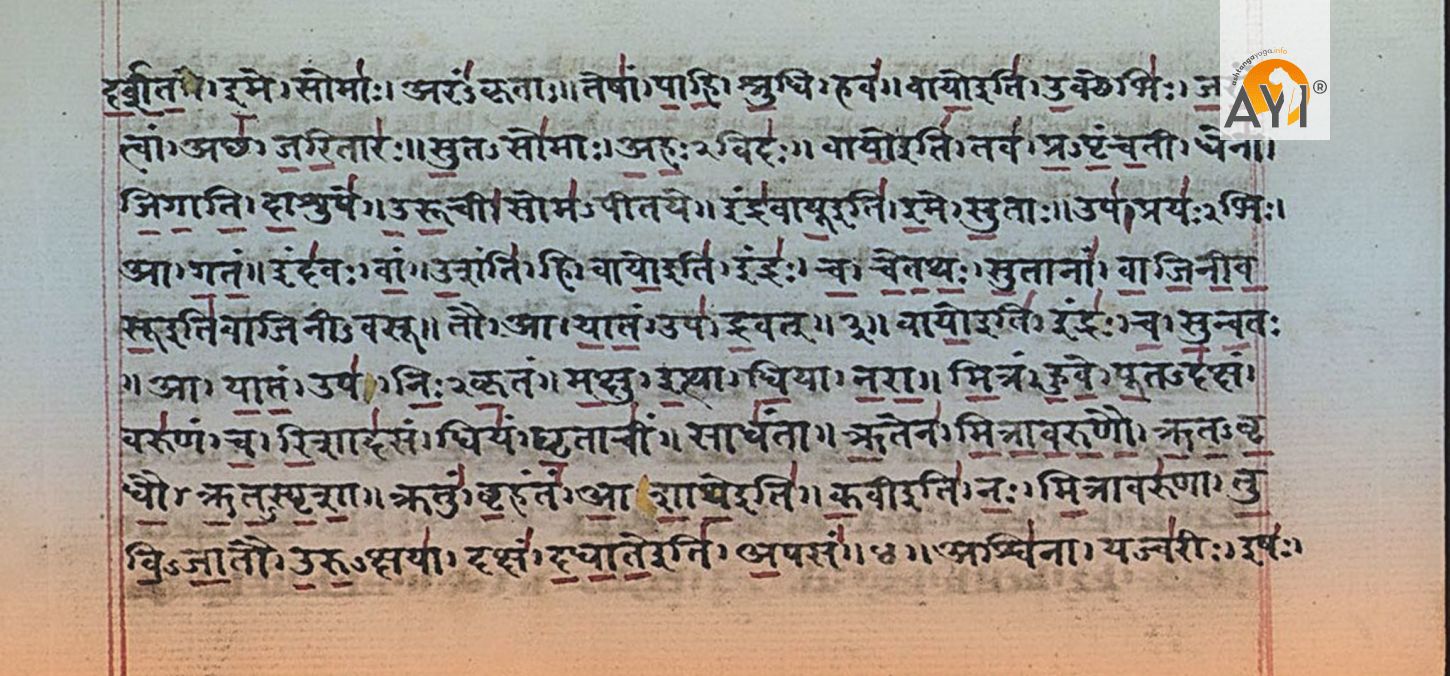 इमे। सोमाः। अरंऽकृताः॥ तेषां। पाहि। श्रुधि। हवं॥ वायोइति। उक्थेभिः।
त्वां। अच्छ। जरितारः॥ सुतऽसोमाः। अहःऽविदः॥ वायोइति। तव। प्रऽपृंचती। धेना।
जिगाति। दाशुषे॥ उरूची। सोमऽपीतये॥ इंद्रवायूइति। इमे। सुताः॥ उप। प्रयःऽभिः।
आ। गतं॥ इंदवः। वां॥ उशंति। हि। वायोइति। इंद्रः। च। चेतथः। सुतानां। वाजिनीव
सूइतिवाजिनीऽवसू॥ तौ। आ। यातं। उप। द्रवत्॥ ३॥ वायोइति। इंद्रः। च। सुन्वतः
। आ। यातं। उप। निःऽकृतं॥ मक्षु। इत्था। धिया। नरा॥ मित्रं। हुवे। पूतऽदक्षं।
वरुणं। च। रिशादसं। धियं। घृताचीं॥ साधंता॥ ऋतेन। मित्रावरुणौ। ऋतऽवृ
धौ। ऋतऽस्पृशा॥ क्रतुं। बृहंतं। आ। शाथेइति॥ कवीइति। नः। मित्रावरुणा। तु
विऽजातौ। उरुऽक्षया। दक्षं। दधातेइति। अपसं॥ ४॥ अश्विना। यज्वरीः। इषः।
ashtangayoga.info
AYI®